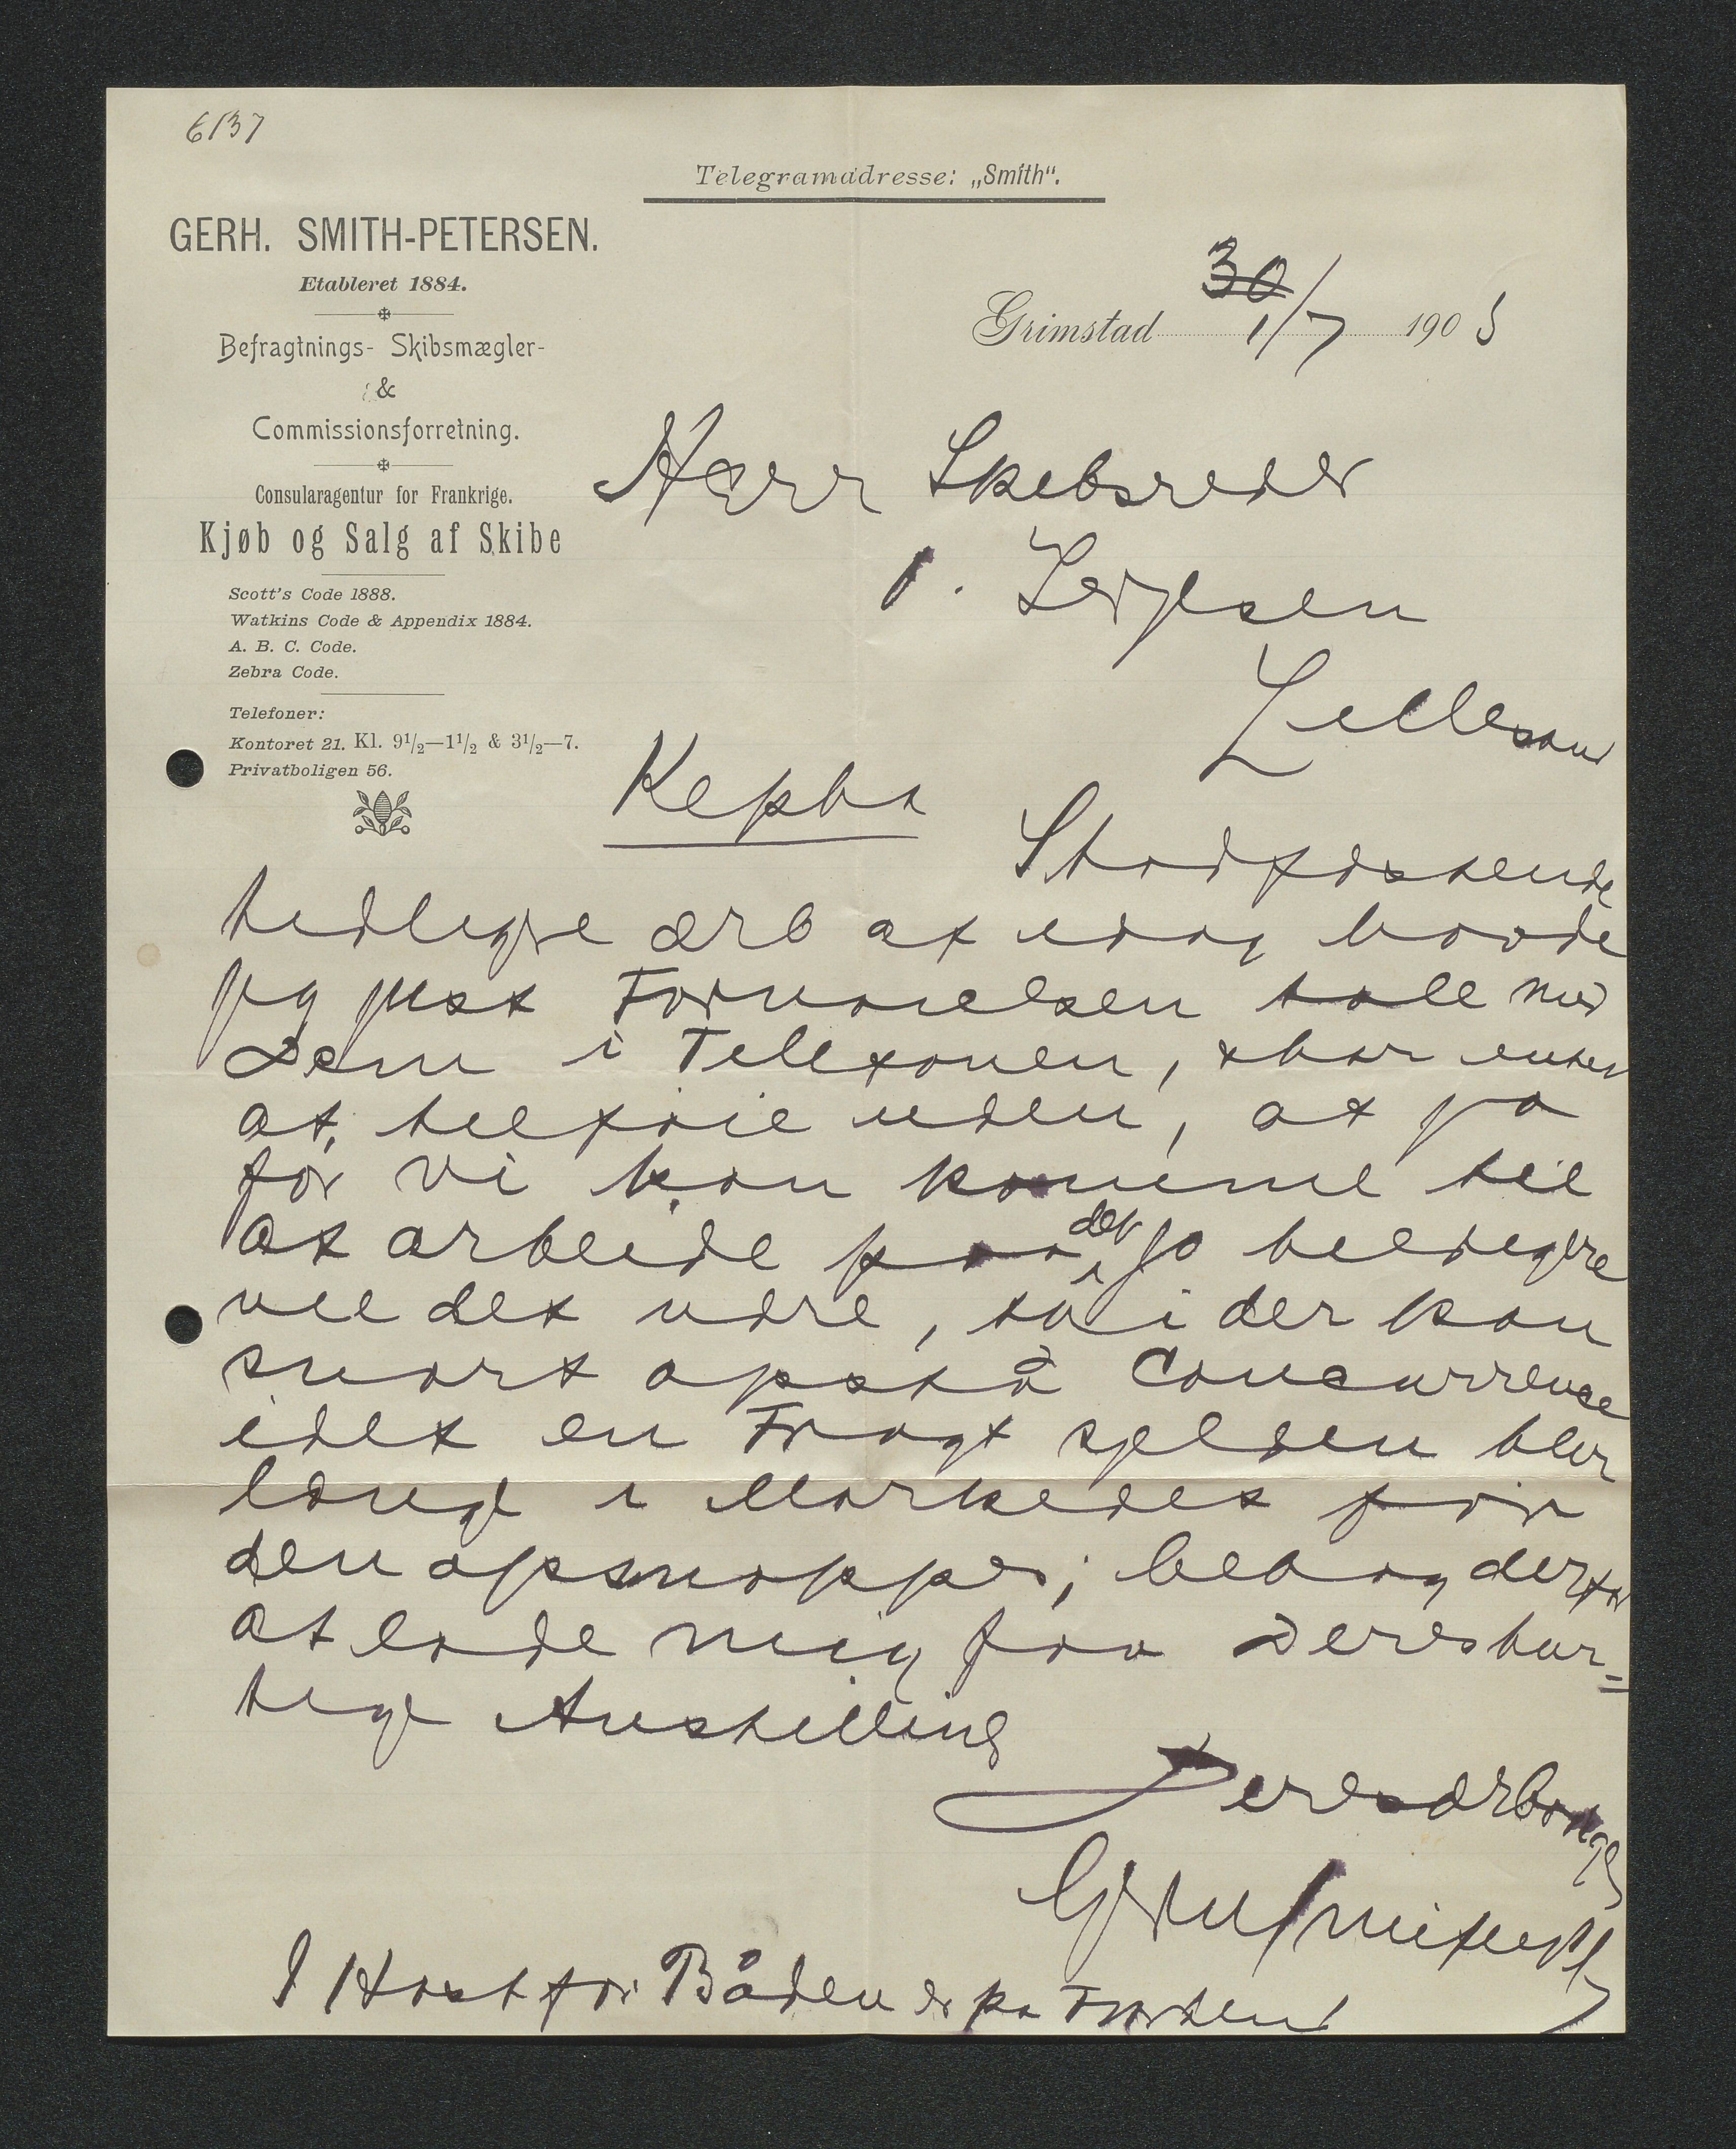 6137
Telegramadresse: „Smith“.
GERH. SMITH-PETERSEN.
Etableret 1884.
Befragtnings- Skibsmægler-
&
Commissionsforretning.
Consularagentur for Frankrige.
Kjøb og Salg af Skibe
Scott's Code 1888.
Watkins Code & Appendix 1884.
A. B. C. Code.
Zebra Code.
Telefoner:
Kontoret 21. Kl. 9 1/2—1 1/2 & 3 1/2—7.
Privatboligen 56.
Grimstad 30 1/7 1905
Herr Skibsreder
Jeppesen
Lillesand
Stadfæstende
tidligere ærb af idag havde
jeg just Fornøielsen tale med
Dem i Telefonen, & har intet
at tilføie uden, at jo
før vi kan komme til
at arbeide paa det jo heldigere
vil det være, da der kan
snart opstå Concurrence
idet en Fragt sjelden blir
længe i Markedet før
den opsnappes; behag derfor
at lade mig faa Deres hur=
tige Anstilling
Deres ærbødige
Gerh Smith Petersen
I Hast før Båden er på Fjorden